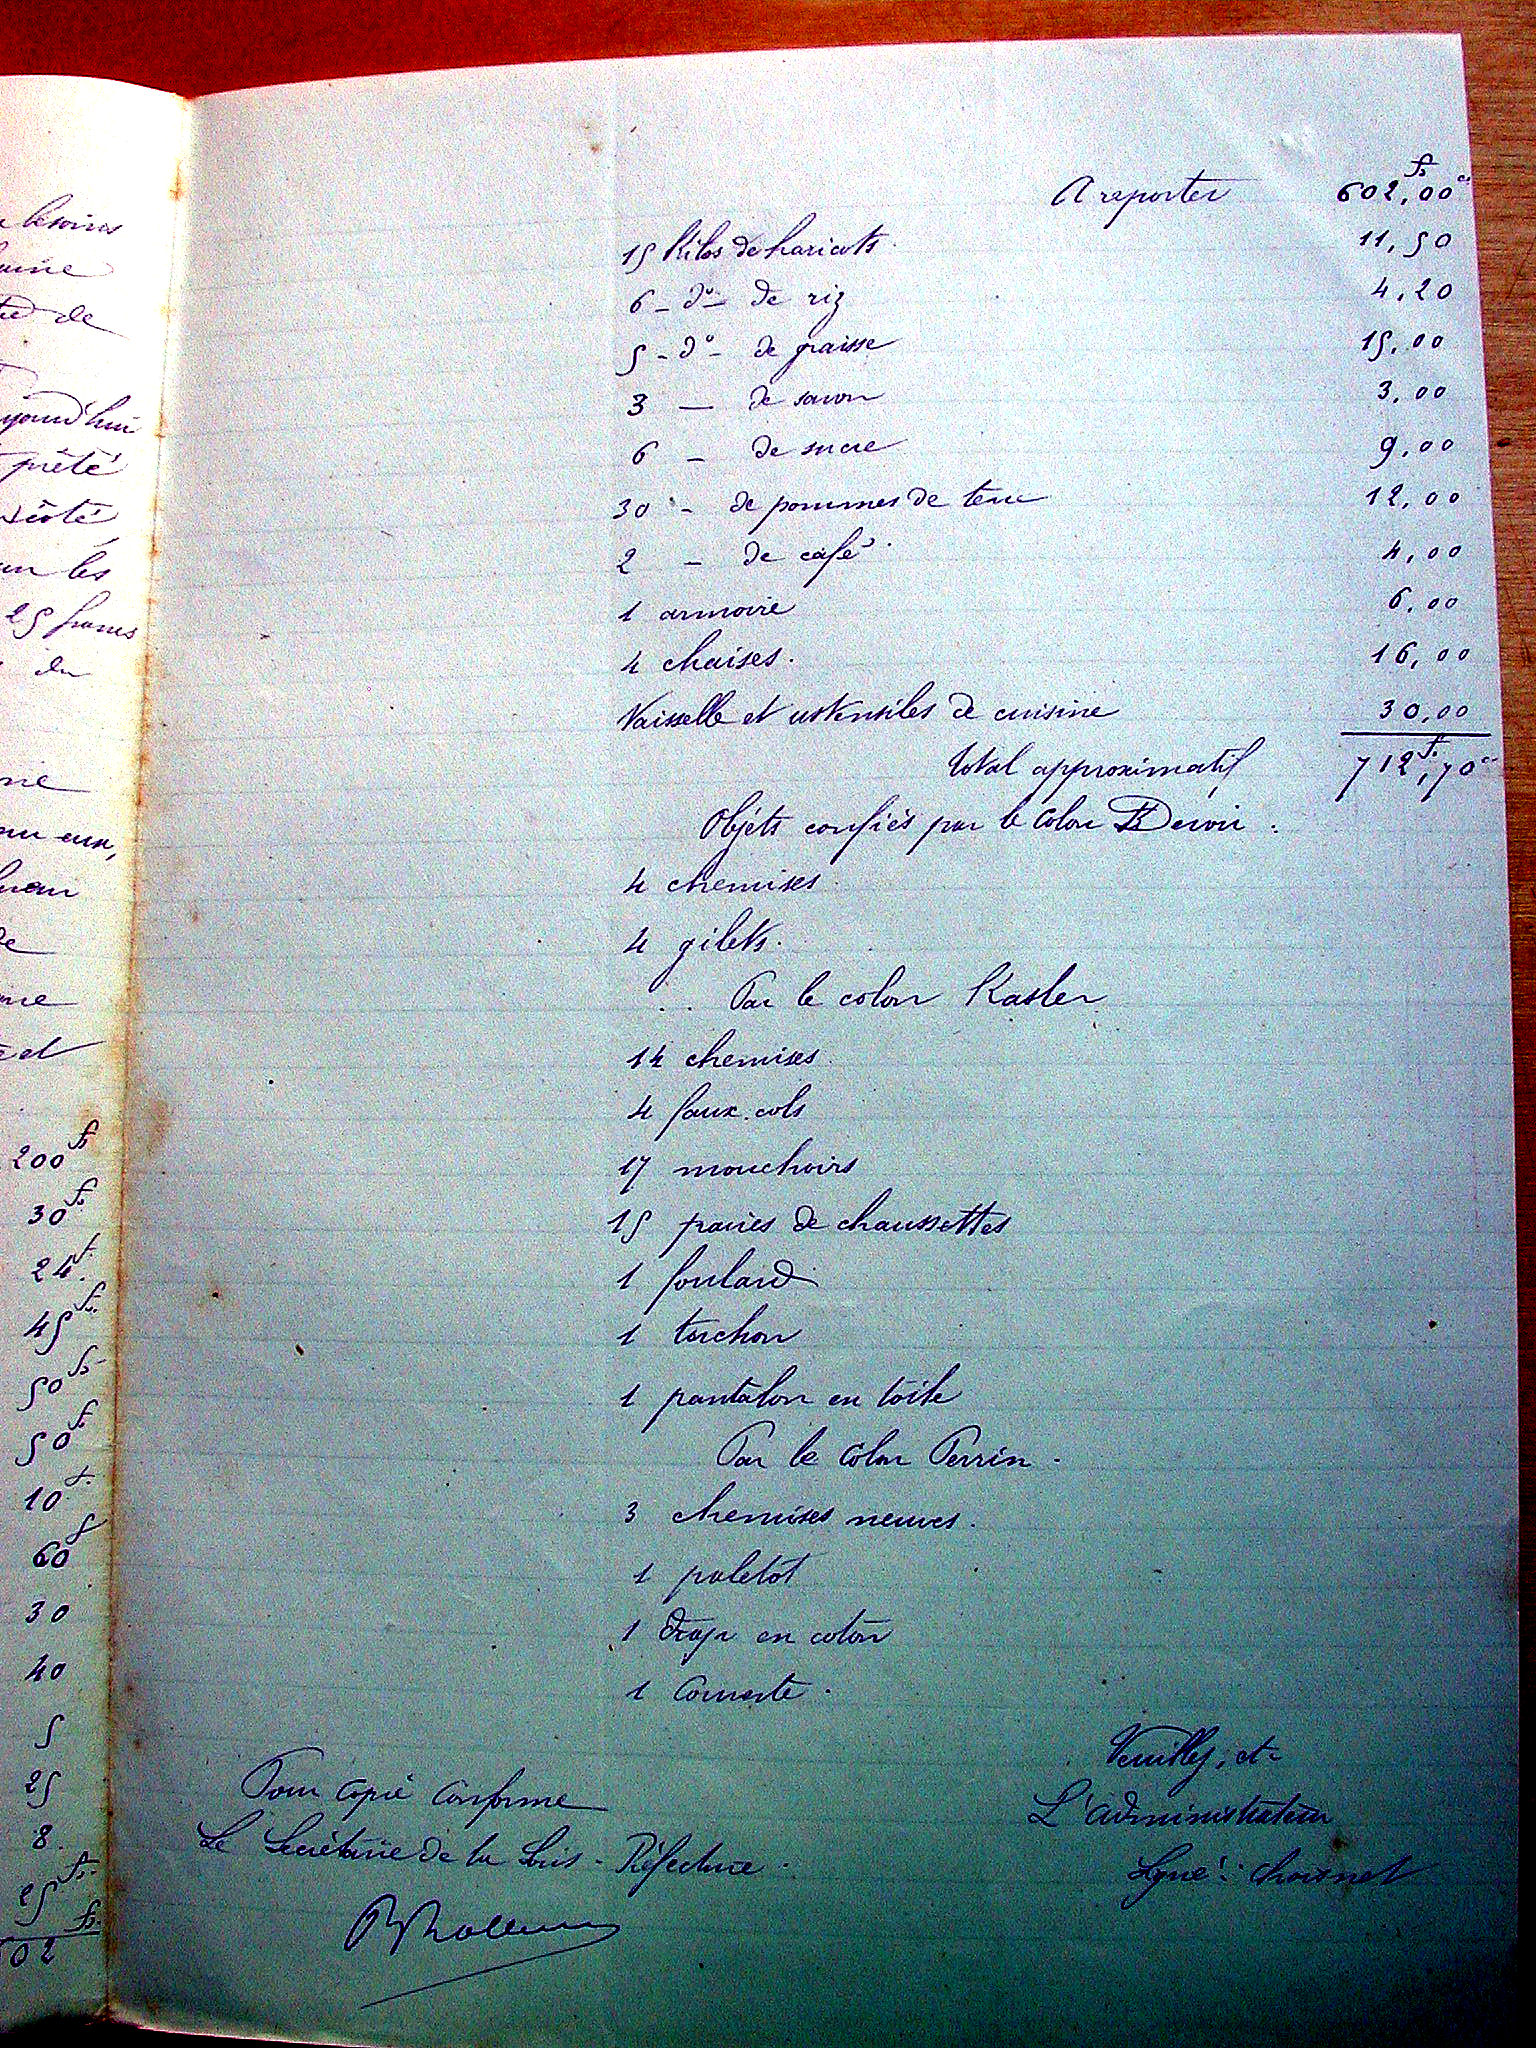 besoins
de
aujourd'hui
prêté
les
25 francs
du
eux,
de
et
200 fs
30 fs
24 f.
45 fs
50 fs
50 fs
10 f.
60 f
30
40
5
25
8.
25 fs.
602 fs.
A reporter 602,00 fs cs
15 Kilos de haricots 11,50
6 - do - de riz 4,20
5 - do - de graisse 15,00
3 — de savon 3,00
6 - de sucre 9,00
30 - de pommes de terre 12,00
2 - de café 4,00
1 armoire 6,00
4 chaises. 16,00
Vaisselle et ustensiles de cuisine 30,00
total approximatif 712,70 fs cs
Objets confiés par le colon Devoir.
4 chemises
4 gilets.
Par le colon Kasler
14 chemises
4 faux-cols
17 mouchoirs
15 paires de chaussettes
1 foulard
1 torchon
1 pantalon en toile
Par le colon Perrin.
3 chemises neuves.
1 paletot
1 drap en coton
1 Couverte.
Veuillez, etc
L'administrateur
Signé: Choisnet
Pour copie conforme
Le Secrétaire de la Sous-Préfecture.